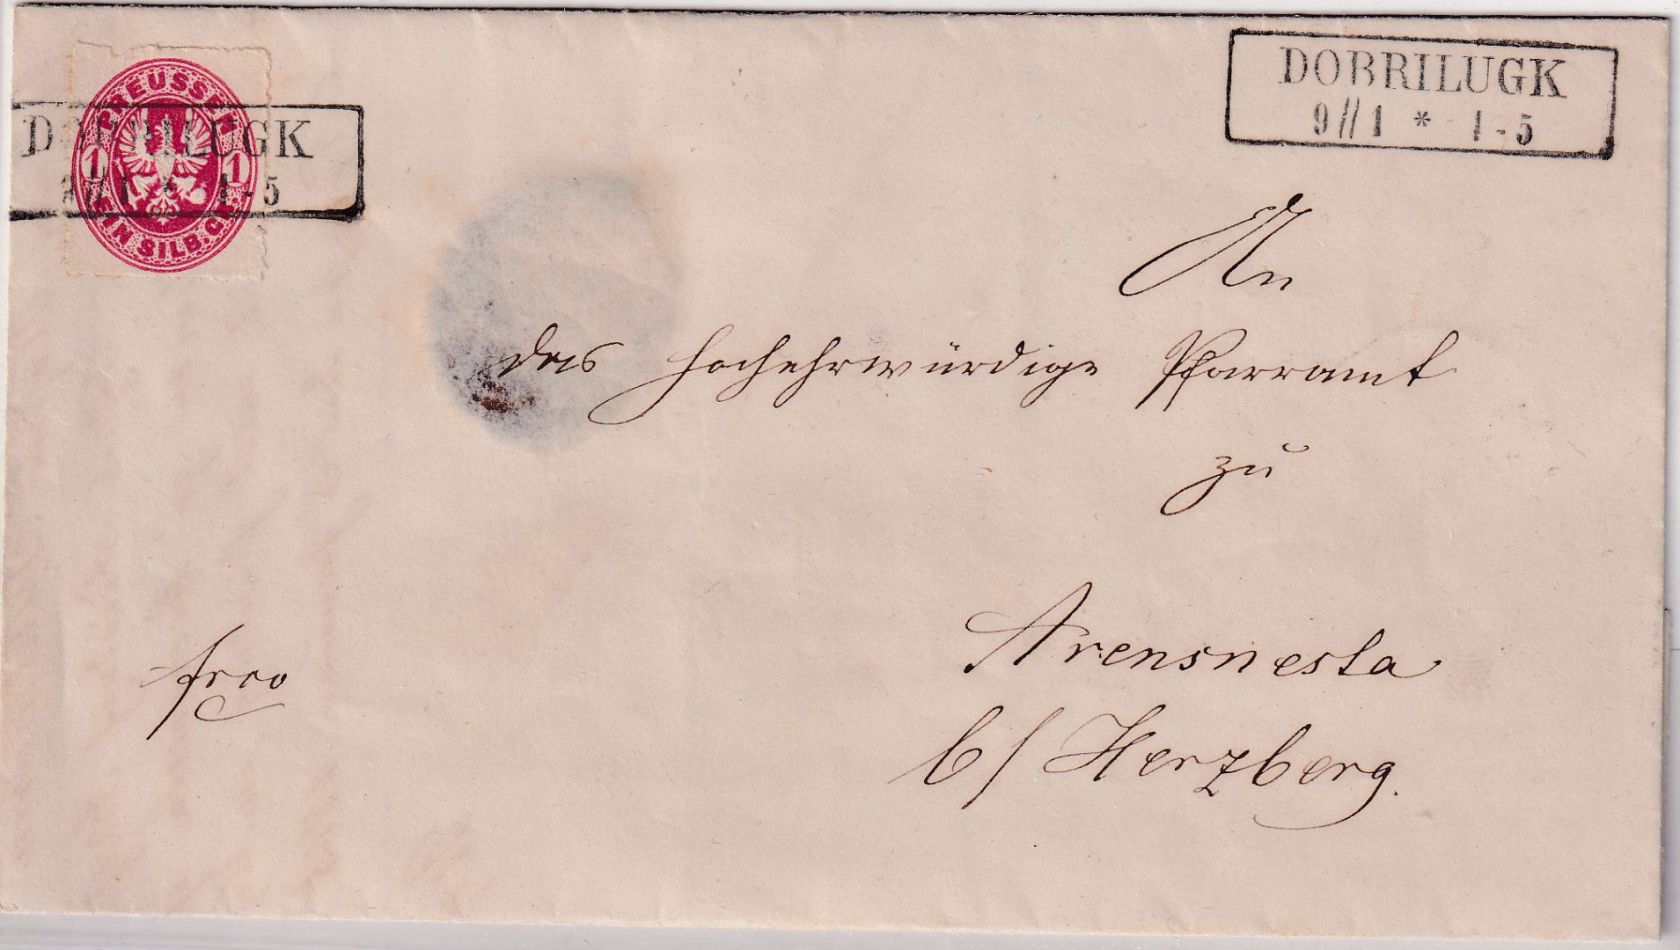 PREUSSEN
1 1
EIN SILB.GR.
DOBRILUGK
9/11 * 4-5
DOBRILUGK
9/11 * 4-5
An
das hochehrwürdige Pfarramt
zu
Arensnesta
b/ Herzberg.
frco